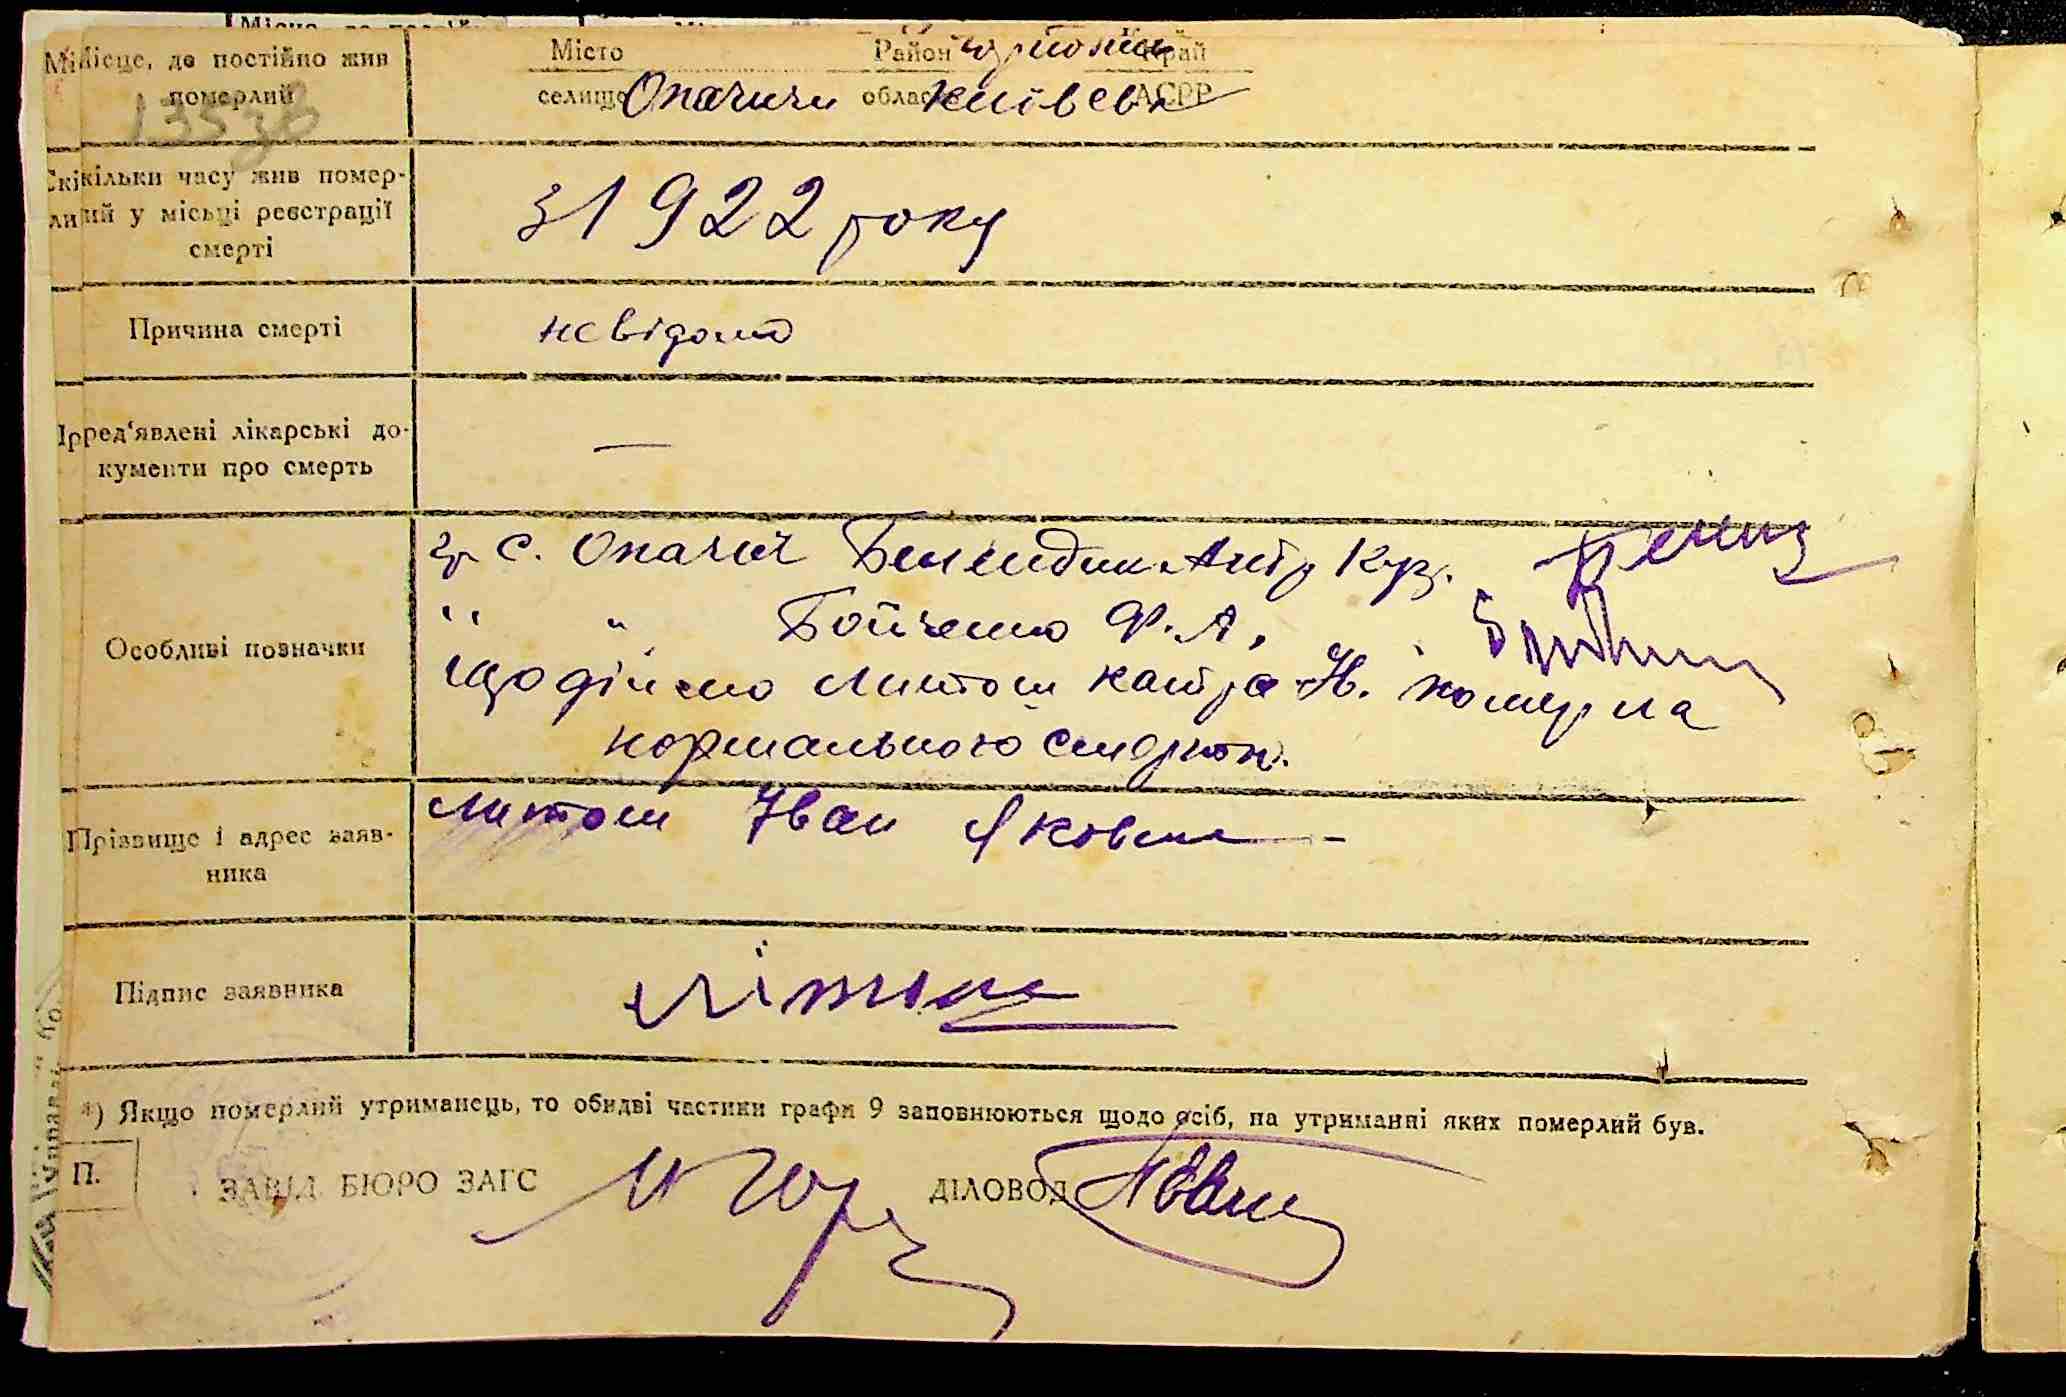 Місце, де постійно жив
померлий
Місто Район Край
селище Опачичи область Київська АСРР
13538
Скільки часу жив помер-
лий у місьці реєстрації
смерті
з 1922 року
Причина смерті
невідомо
Пред'явлені лікарські до-
кументи про смерть
—
Особливі позначки
гр. С. Опачич
" " Бойченко Ф. А,
що дійсно Литош померла
нормальною смертю.
Прізвище і адрес заяв-
ника
Литош Іван Якович
Підпис заявника
*) Якщо померлий утриманець, то обидві частини графи 9 заповнюються щодо осіб, на утриманні яких померлий був.
П.
ЗАВІД. БЮРО ЗАГС ДІЛОВОД